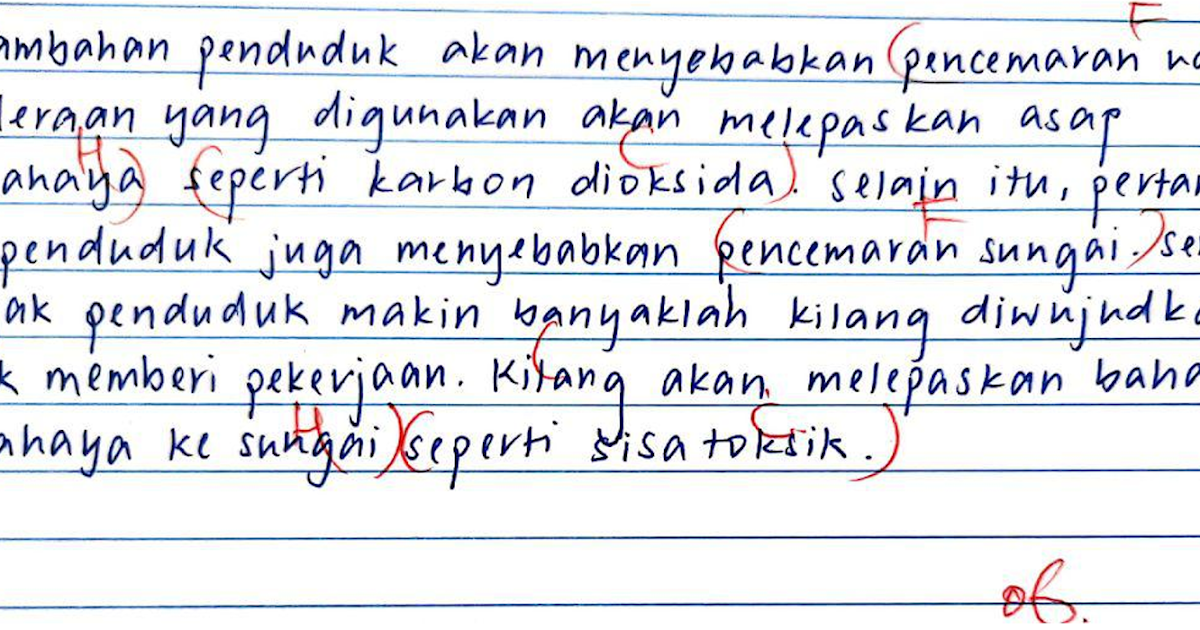 F
ambahan penduduk akan menyebabkan (pencemaran
deraan yang digunakan akan melepaskan asap
H C
ahaya) (seperti karbon dioksida). selain itu, pertam
F
penduduk juga menyebabkan (pencemaran sungai.) se
ak penduduk makin banyaklah kilang diwujudk
k memberi pekerjaan. Kilang akan melepaskan baha
H C
ahaya ke sungai) (seperti sisa toksik.)